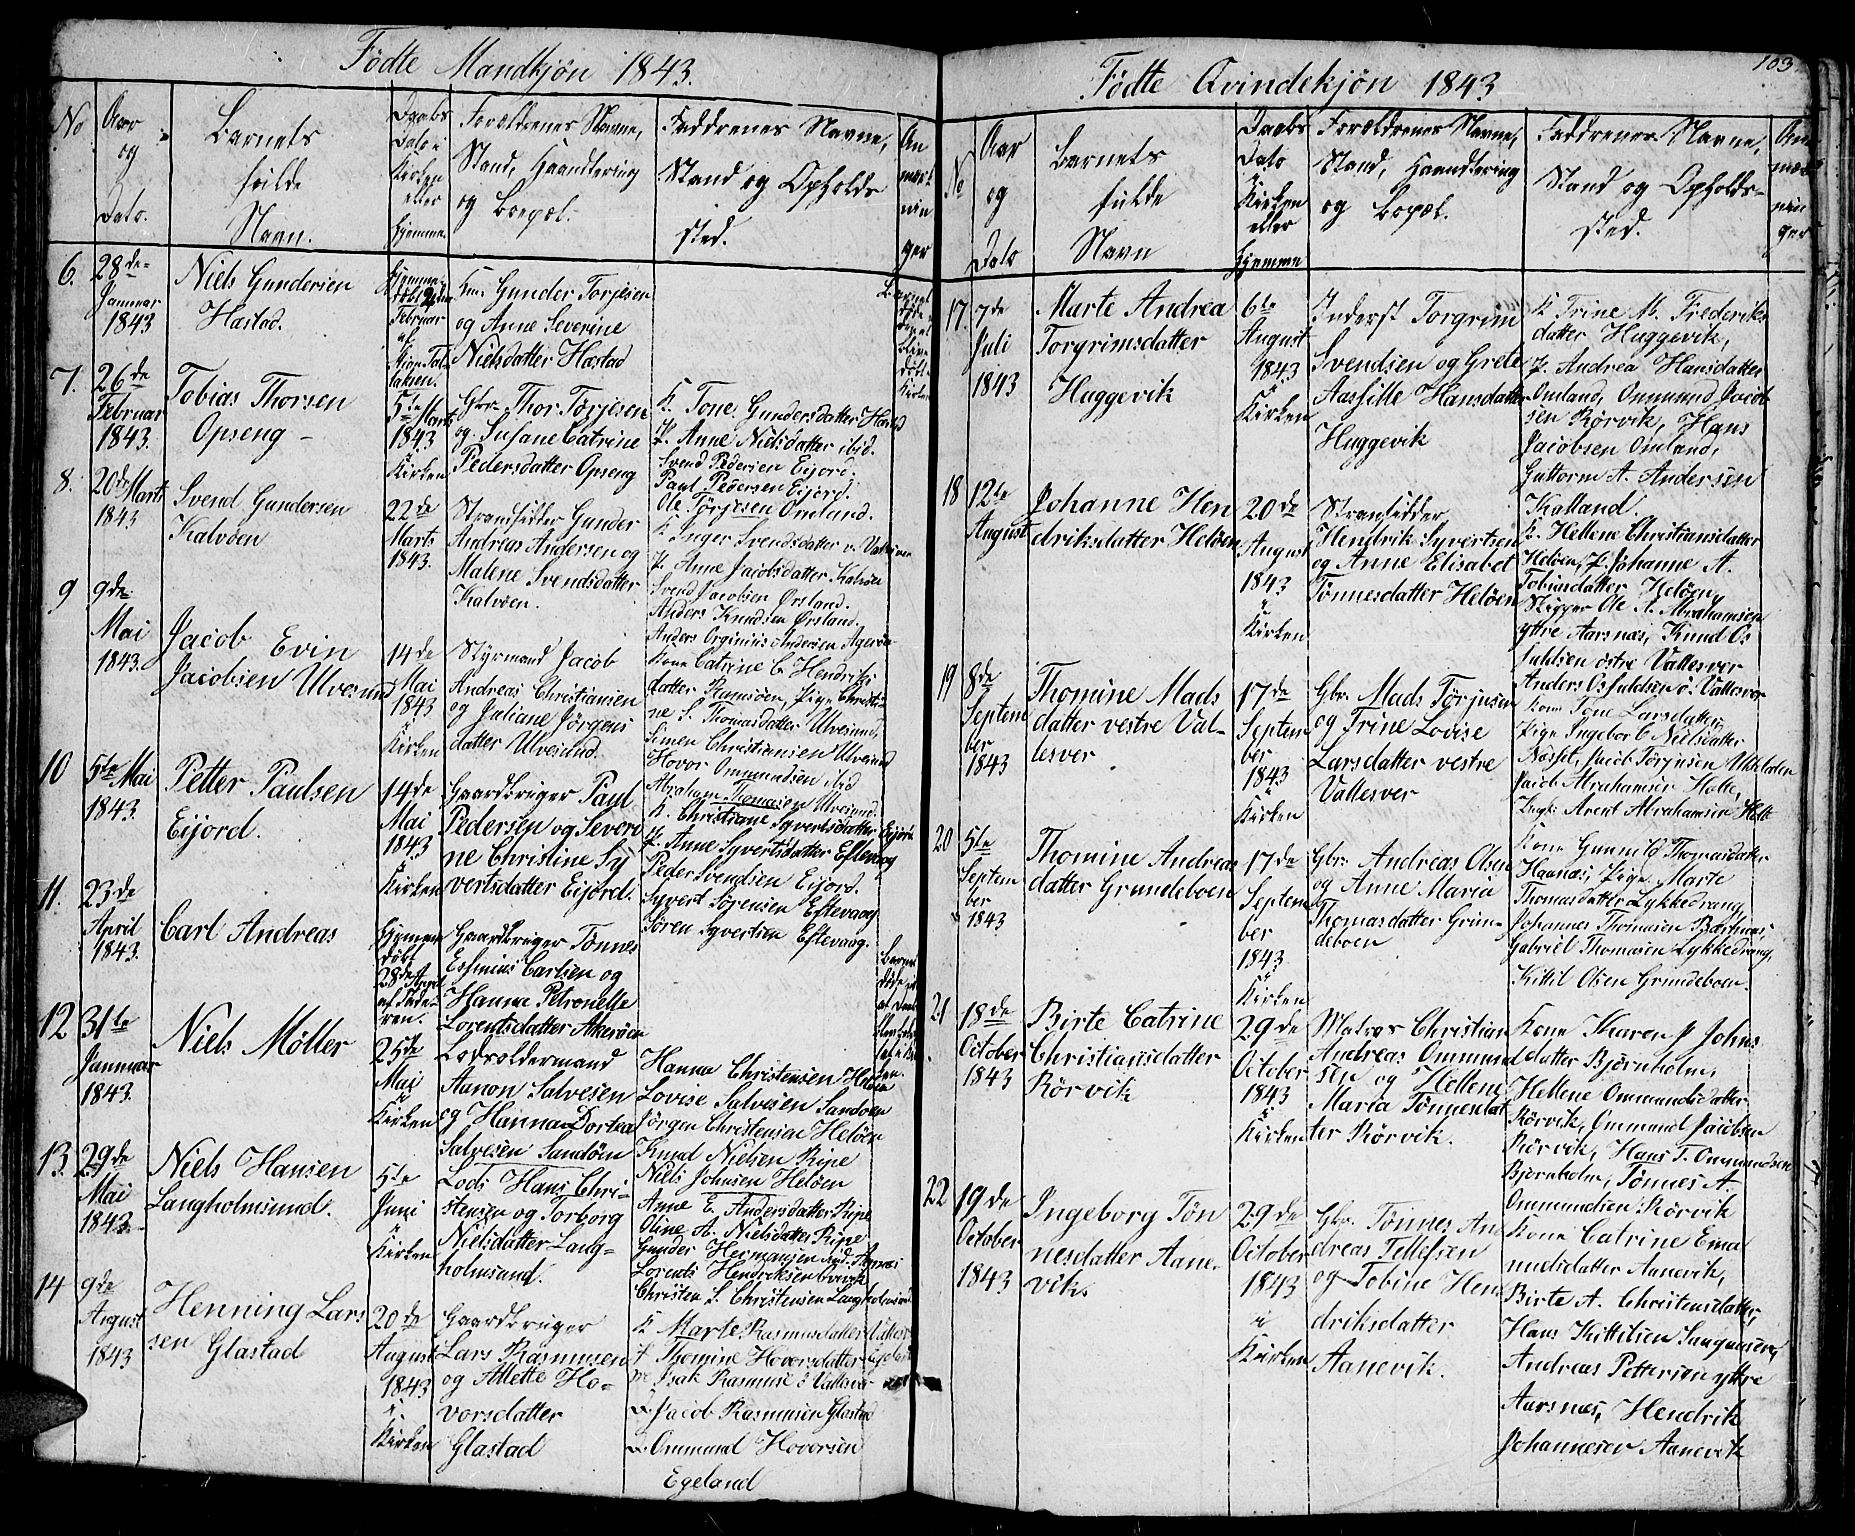 Fødte Mandkjøn 1843.
No
Aar og Dato.
Barnets fulde Navn.
Daabs Dato i Kirken eller Hjemme.
Forældrenes Navne, Stand, Haandtering og Bopæl.
Faddrenes Navne, Stand og Opholds sted.
An mærk nin ger
6.
28de Januar 1843
Niels Gundersen
Hastad.
Km. Gunder Torjesen
og Anne Severine
Nielsdatter Hastad
7.
26de Februar 1843.
Tobias Thorsen
Opseng -
5te Marts 1843 Kirken
Gbr. Thor Torjesen
og Susane Catrine
Pedersdatter Opseng
K. Tone Gundersdatter Hastad
P. Anne Nielsdatter ibid.
Svend Pedersen Eijord.
Paul Pedersen Eijord.
Ole Torjesen Omland.
8.
20de Marts 1843
Svend Gundersen
Kalvøen
22de Marts 1843.
Strandsidder Gunder
Andreas Andersen og
Malene Svendsdatter
Kalvøen.
K. Inger Svendsdatter v. Vallesver
P. Anne Jacobsdatter Kalvøen
Svend Jacobsen Ørsland.
Anders Knudsen Ørsland.
Anders Orginius Andersen Agerøe
9
9de Mai 1843.
Jacob Evin
Jacobsen Ulvesund
14de Mai 1843 Kirken
Styrmand Jacob
Andreas Christiansen
og Juliane Jørgens
datter Ulvesund.
Kone Catrine C. Hendriks
datter Ramsøen, Pige Christi-
ne S. Thomasdatter Ulvesund,
Simen Christiansen Ulvesund
Hovor Ommundsen ibid
Abraham Thomasen Ulvesund.
10
5te Mai 1843.
Petter Paulsen
Eijord.
14de Mai 1843 Kirken
Gaardbruger Paul
Pedersen og Severi
ne Christine Sy
vertsdatter Eijord.
K. Christiane Syvertsdatter Eijord
P. Anne Syvertsdatter Eftevaag
Peder Svendsen Eijord.
Syvert Sørensen Eftevaag
Søren Syvertsen Eftevaag.
11.
23de April 1843.
Carl Andreas
Hjemmedøbt 28de April af Faderen.
Gaardbruger Tønnes
Essinius Carlsen og
Hanna Petronelle
Lorentsdatter Akerøen
12
31te Januar 1843.
Niels Møller
25de Mai i Kirken
Lodsoldermand
Aanon Salvesen
og Hanna Dortea
Salvesen Sandøen
Hanna Christensen Heløen
Lovise Salvesen Sandøen
Jørgen Christensen Heløen
Knud Nielsen Ripe
Niels Johnsen Heløen
13.
29de Mai 1843.
Niels Hansen
Langholmsund.
5te Juni Kirken
Lods Hans Chri-
stensen og Torborg
Nielsdatter Lang-
holmsund.
Anne E. Andersdatter Ripe
Oline A. Nielsdatter Ripe
Gunder Hermansen ind. Aarsnæs
Lorents Hendriksen
Christen S. Christensen Langholmsund
14
9de August 1843
Henning Lars
sen Glastad
20de August 1843 i Kirken
Gaardbruger
Lars Rasmusen
og Atlette Ho-
vorsdatter
Glastad
K Marte Rasmusdatter
P Thomine Hovorsdatter Egeland
Isak Rasmuse ø Vallesver
Jacob Rasmusen Glastad
Ommund Hovorsen
Egeland
103.
Fødte Qvindekjøn 1843
No
Aar og Dato
Barnets fulde Navn
Daabs Dato i Kirken eller Hjemme
Forældrenes Navne, Stand, Haandtering og Bopæl.
Faddrenes Navne, Stand og Opholds-sted.
17.
7de Juli 1843
Marte Andrea
Torgrimsdatter
Huggevik
6te August 1843 i Kirken
Inderst Torgrim
Svendsen og Grete
Aasille Hansdatter
Huggevik
K Trine M. Frederiks
datter, Huggevik,
P. Andrea Hansdatter
Omland, Ommund Jacob
sen Rørvik, Hans
Jacobsen Omland,
Guttorm A. Andersen
Kalland.
18
12te August
Johanne Hen
driksdatter Heløen
20de August 1843 i Kirken
Strandsidder
Hendrik Syvertsen
og Anne Elisabet
Tønnesdatter Heløen
K. Hellene Christiansdatter
Heløen, P. Johanne A.
Tobiasdatter Heløen,
Skipper Ole A. Abrahamsen
yttre Aarsnæs, Knud Os
juldsen østre Vallesver
Anders Osjuldsen ø. Vallesver
19
8de September 1843
Thomine Mads
datter vestre Val-
lesver
17de September 1843 i Kirken
Gbr. Mads Torjusen
og Trine Lovise
Larsdatter vestre
Vallesver
Kone Tone Larsdatter,
Pige Ingebor C Nielsdatter
Jacob Torjusen
Jacob Abrahamsen Holte,
Ungk: Arent Abrahamsen Holte
20
5te September 1843
Thomine Andreas
datter Grundeboen
17de September 1843 i Kirken
Gbr. Andreas Olsen
og Anne Maria
Thomasdatter Grun-
deboen
Kone Gunnild Thomasdatter
Haanæs, Pige Marte
Thomasdatter Lykkedrang,
Johannes Thomasen
Gabriel Thomasen Lykkedrang,
Kittil Olsen Grundeboen.
21
18de October 1843
Birte Catrine
Christiansdatter
Rørvik
29de October 1843 i Kirken
Matros Christian
Andreas Ommund
sen og Hellene
Maria Tønnesdat
ter Rørvik.
Kone Karen J Johns
datter Bjørnholm,
Hellene Ommundsdatter
Rørvik, Ommund Jacobsen
Rørvik, Hans T. Ommundsen
Bjørnholm, Tønnes A
Ommundsen Rørvik
22
19de October 1843
Ingeborg Tøn
nesdatter Aane-
vik.
29de October 1843 i Kirken
Gbr. Tønnes An
dreas Tellefsen
og Tobine Hen
driksdatter
Aanevik.
Kone Catrine Ema
nuelsdatter Aanevik,
Birte A. Christensdatter,
Hans Kittilsen
Andreas Pettersen yttre
Aarsnæs, Hendrik
Johannesen Aanevik